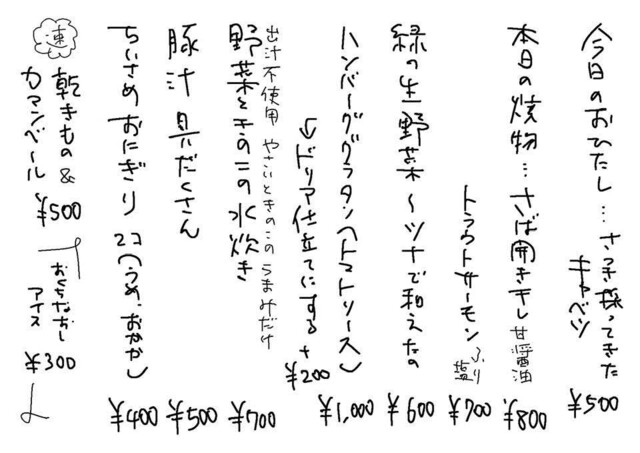 今日のおひたし…さっき採ってきた
キャベツ
¥500
本日の焼物…さば開き干し 甘醤油
¥800
トラウトサーモン ふり塩
¥700
緑の生野菜〜ツナで和えたの
¥600
ハンバーググラタン(トマトソース)
¥1,000
↓ドリア仕立てにする +¥200
出汁不使用 やさいときのこのうまみだけ
野菜ときのこの水炊き
¥700
豚汁 具だくさん
¥500
ちいさめおにぎり 2コ(うめ、おかか)
¥400
速
乾きもの&
カマンベール
¥500
おくちなおし
アイス
¥300